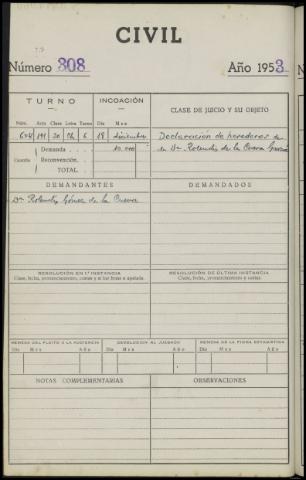 CIVIL
Número 808 Año 1953
TURNO INCOACIÓN CLASE DE JUICIO Y SU OBJETO
Núm. Año Clase Letra Turno Día Mes
6 18 diciembre Declaración de herederos de
Cuantía Demanda 10.000 Dª Rolendis de la Cueva
Reconvención.
TOTAL
DEMANDANTES DEMANDADOS
Dª Rolendis Gómez de la Cueva
RESOLUCIÓN EN 1.ª INSTANCIA RESOLUCIÓN DE ÚLTIMA INSTANCIA
Clase, fecha, pronunciamiento, costas y si fué firme o apelada. Clase, fecha, pronunciamiento y costas.
REMESA DEL PLEITO A LA AUDIENCIA DEVOLUCION AL JUZGADO REMESA DE LA FICHA ESTADÍSTICA
Día Mes Año Día Mes Año Día Mes Año
NOTAS COMPLEMENTARIAS OBSERVACIONES